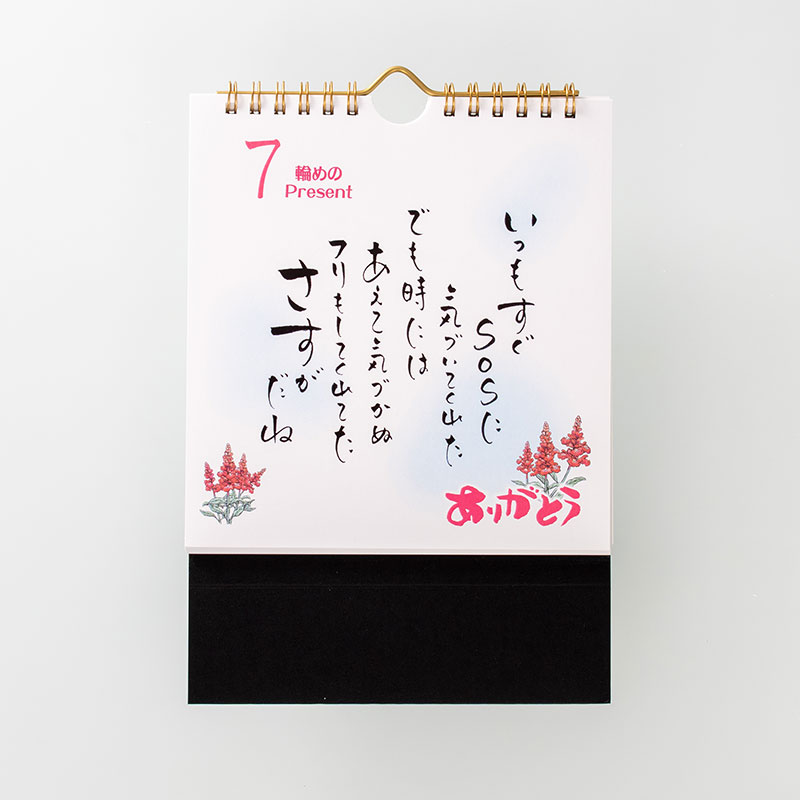 7
輪めの
Present
いつもすぐ
SOSに
気づいてくれた
でも時には
あえて気づかぬ
フリもしてくれてた
さすが
だね
ありがとう